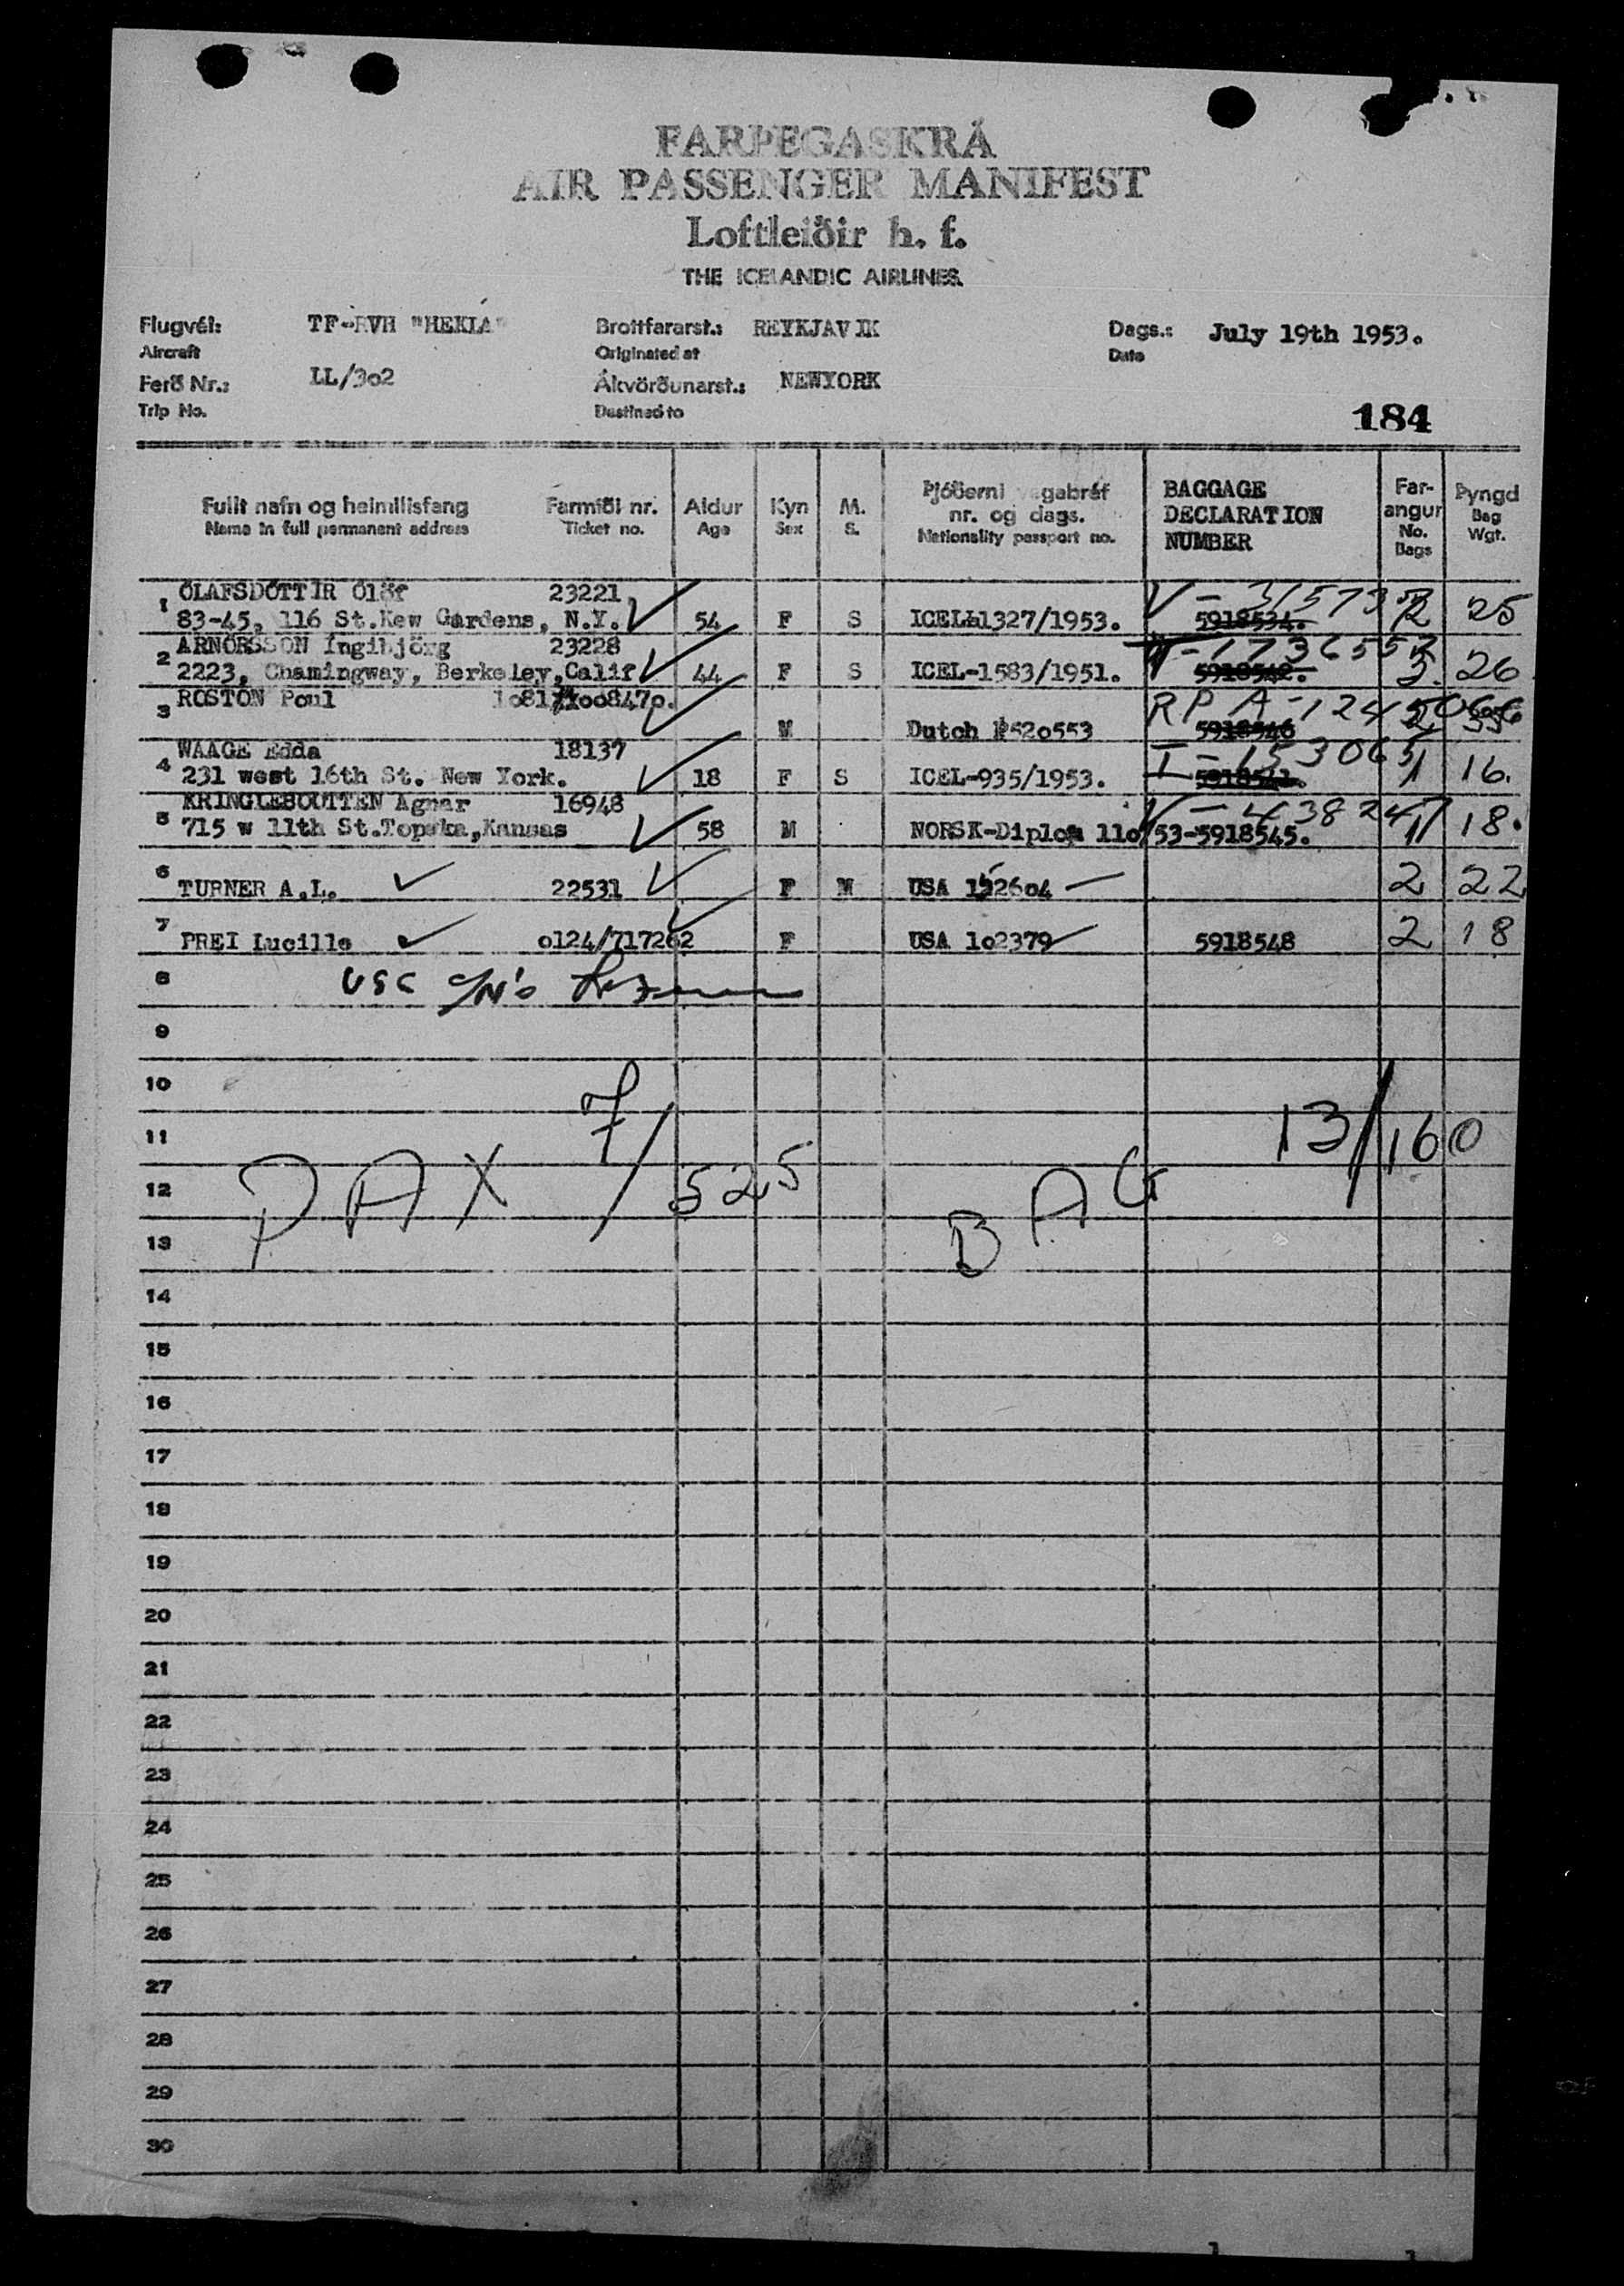 FARÞEGASKRÁ
AIR PASSENGER MANIFEST
Loftleiðir h. f.
THE ICELANDIC AIRLINES
Flugvél: TF-RVH "HEKLA" Brottfararst.: REYKJAVIK Dags.: July 19th 1953.
Aircraft Originated at Date
Ferð Nr.: LL/3o2 Ákvörðunarst.: NEWYORK
Trip No. Destined to
184
Fullt nafn og heimilisfang Farmiði nr. Aldur Kyn M. Þjóðerni vegabréf BAGGAGE Far- Þyngd
Name in full permanent address Ticket no. Age Sex S. nr. og dags. DECLARATION angur Bag
Nationality passport no. NUMBER No. Bags Wgt.
1 ÓLAFSDÓTTIR Ólöf 23221
83-45, 116 St.Kew Gardens, N.Y. 54 F S ICEL-1327/1953. 5918534. 2 25
2 ARNÓRSSON Ingibjörg 23228
2223, Chamingway, Berkeley,Calif 44 F S ICEL-1583/1951. 5918542. 3. 26
3 ROSTON Poul
M Dutch 520553 5918546 2
4 WAAGE Edda 18137 I-153065
231 west 16th St. New York. 18 F S ICEL-935/1953. 1 16.
5 KRINGLEBOUTTEN Agnar 16948 V-438247
715 w 11th St.Topeka,Kansas 58 M NORSK-Diplom 11o/53-5918545. 1 18.
6 TURNER A.L. 22531 F M USA 152604 2 22
7 PREI Lucille o124/717262 F USA 1o2379 5918548 2 18
8 USC
9
10
11
12 PAX 7/525 BAG 13/160
13
14
15
16
17
18
19
20
21
22
23
24
25
26
27
28
29
30